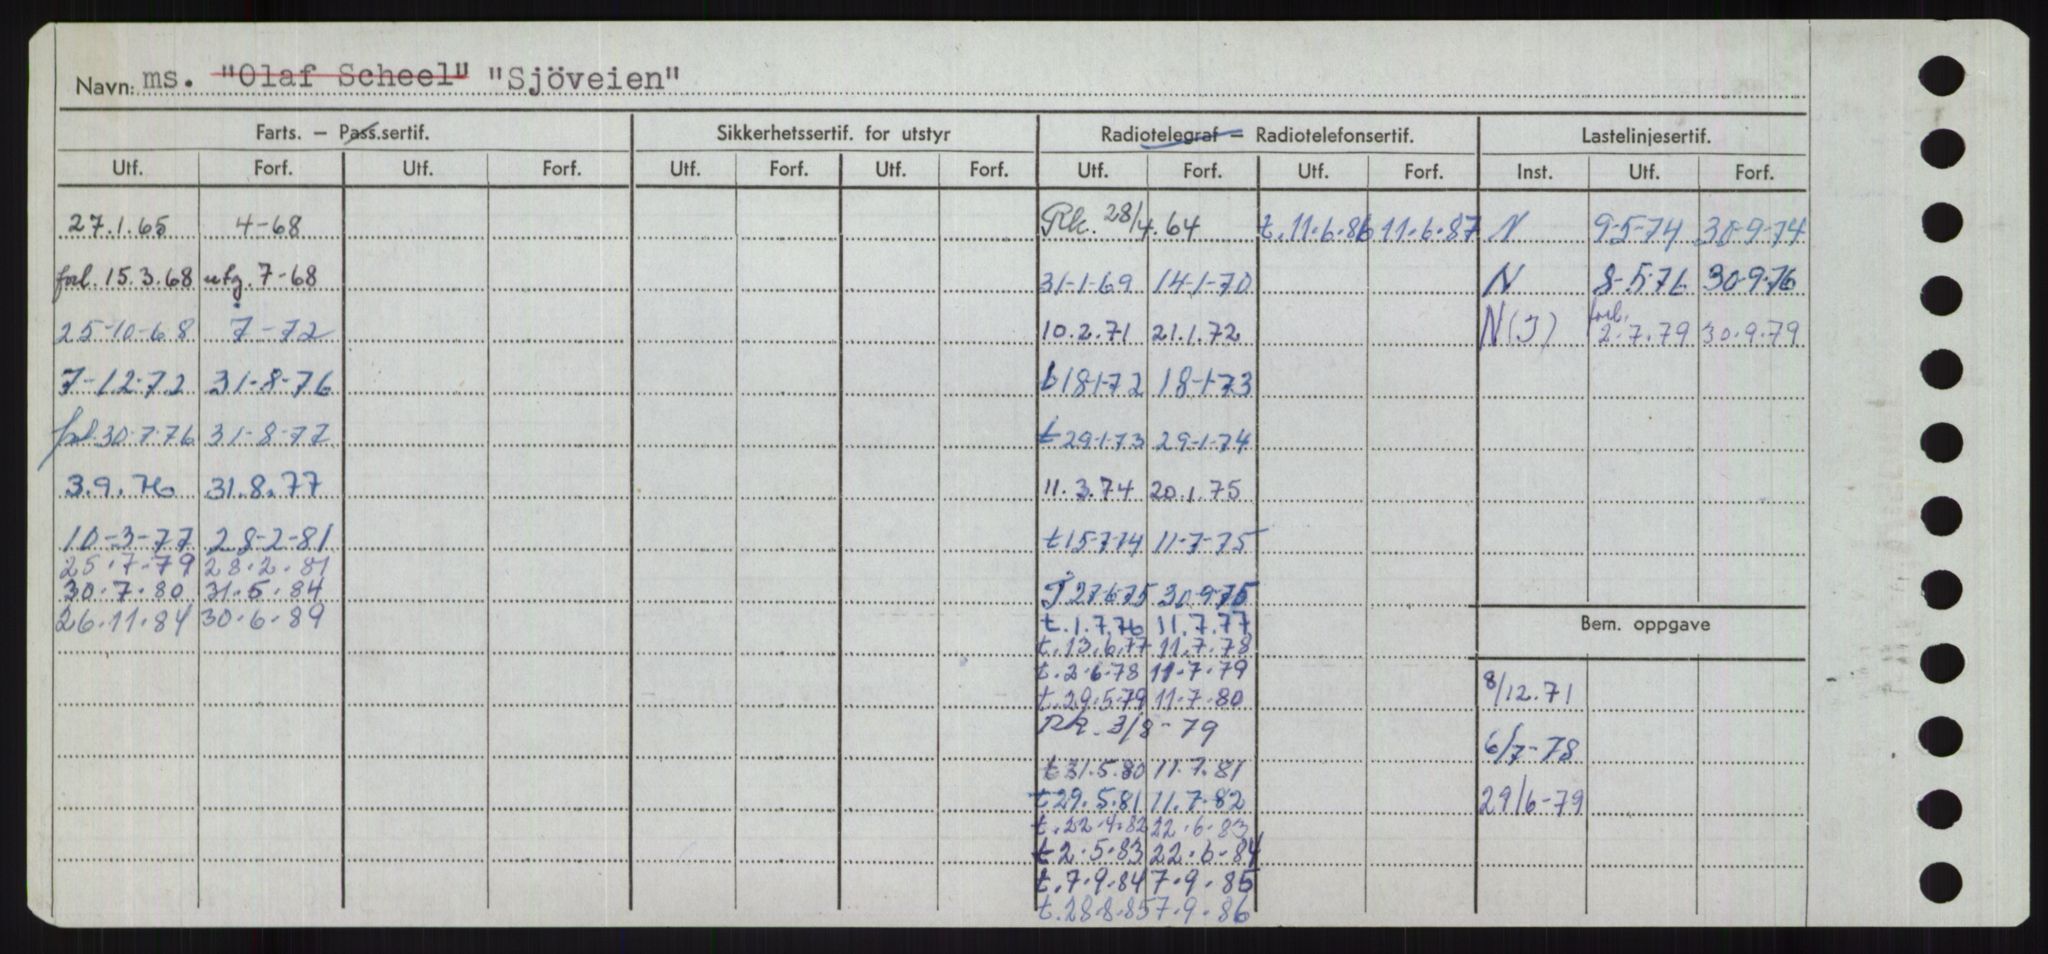 Navn: ms. "Olaf Scheel" "Sjöveien"
Farts. – Pass.sertif. Sikkerhetssertif. for utstyr Radiotelegraf – Radiotelefonsertif. Lastelinjesertif.
Utf. Forf. Utf. Forf. Utf. Forf. Utf. Forf. Utf. Forf. Utf. Forf. Inst. Utf. Forf.
27.1.65 4-68 Rk. 28/4.64 t.11.6.86 11.6.87 N 9-5-74 30-9-74
forl. 15.3.68 utg. 7-68 31-1-69 14-1-70 N 8-5-76 30-9-76
25-10-68 7-72 10.2.71 21.1.72 N(J) forl. 2.7.79 30.9.79
7-12-72 31-8-76 t18-1-72 18-1-73
forl. 30-7-76 31-8-77 t29-1-73 29-1-74
3.9.76 31.8.77 11.3.74 20.1.75
10-3-77 28-2-81 t15-7-74 11-7-75
25.7.79 28.2.81
30.7.80 31.5.84 J 27-6-75 30-9-75
26.11.84 30.6.89 t.1.7.76 11.7.77
Bem. oppgave
t.13.6.77 11.7.78
t.2.6.78 11.7.79
t.29.5.79 11.7.80 8/12.71
Rk. 3/8-79
6/7-78
t31.5.80 11.7.81
t29.5.81 11.7.82 29/6-79
t.22.4.82 22.6.83
t2.5.83 22.6.84
t.7.9.84 7.9.85
t.28.8.85 7.9.86